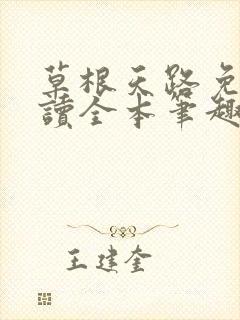 草根天路免
讀全本筆趣
王建奎